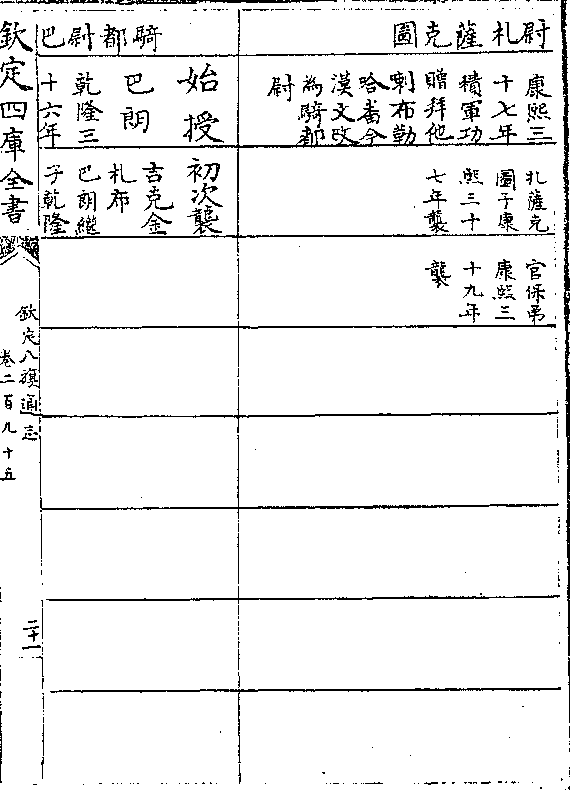 尉札薩克圖
康熙三
十七年
積軍功
贈拜他
剌布勒
哈畨今
漢文改
為騎都
尉
札薩克
圖子康
熙三十
七年襲
官保弟
康熙三
十九年
襲
騎都尉巴
始授
巴朗
乾隆三
十六年
初次襲
吉克金
札布
巴朗繼
子乾隆
欽定四庫全書
欽定八旗通志
卷二百九十五
二十一